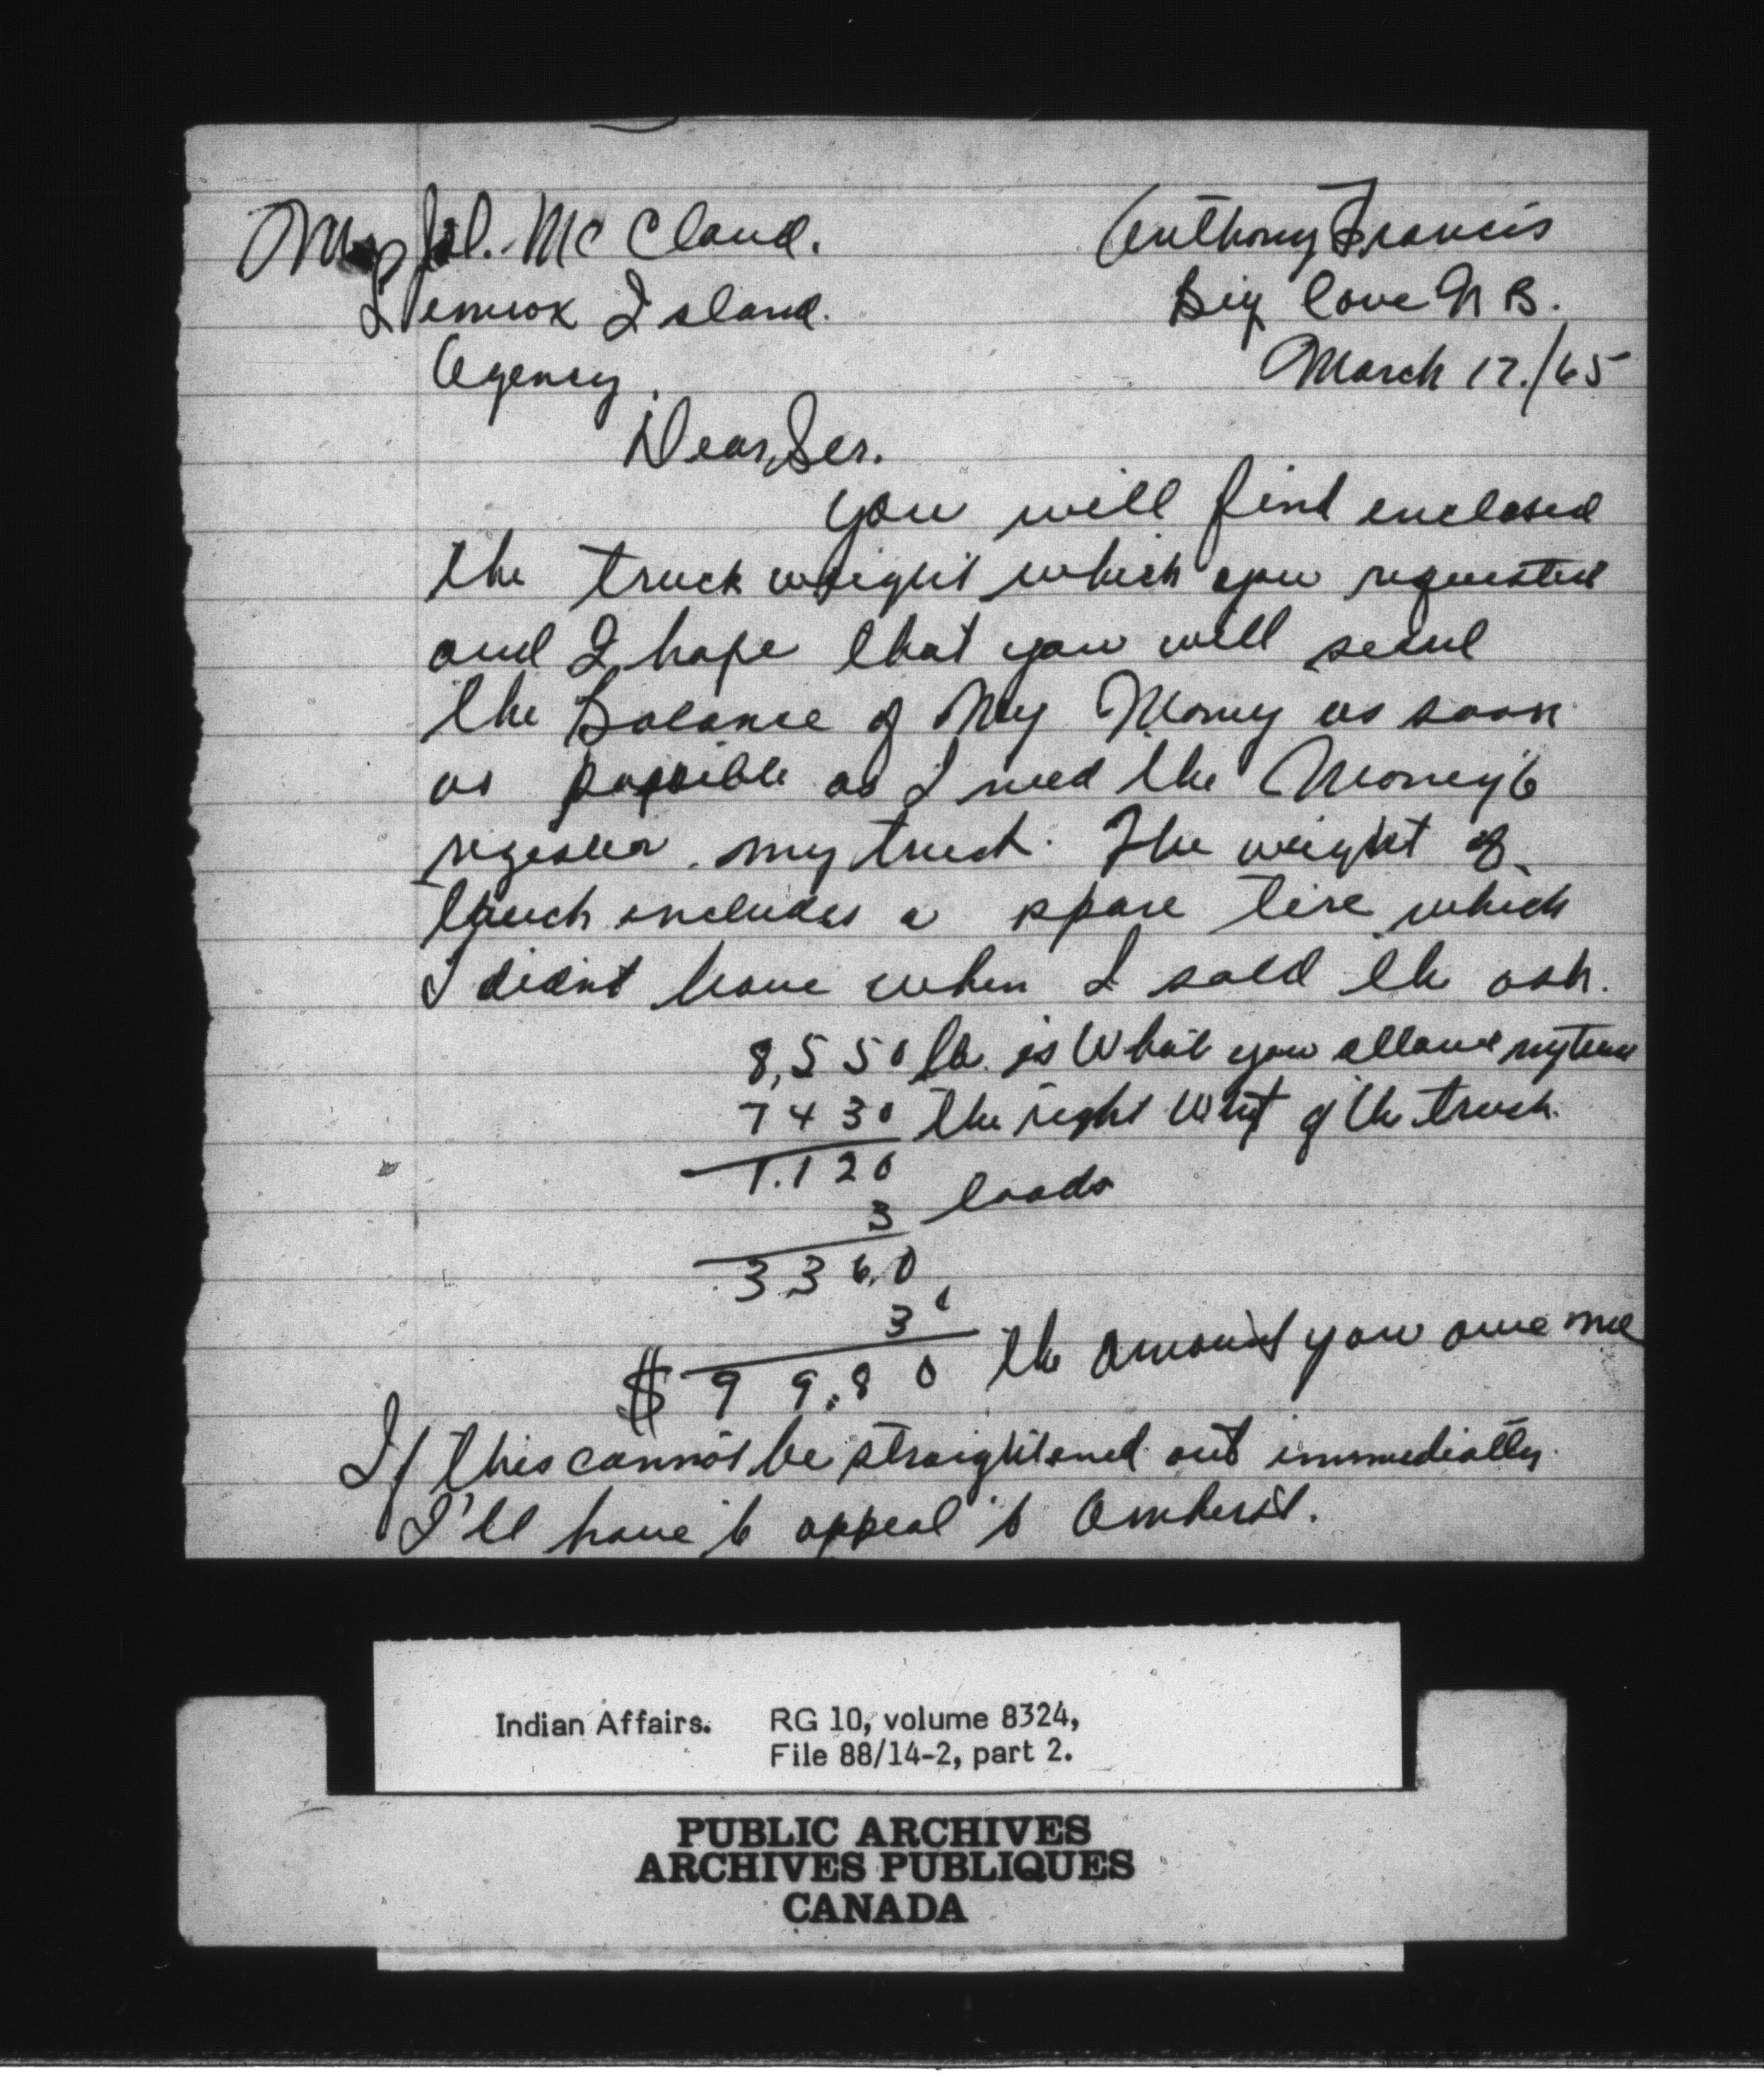 Mr Jol. McCloud.
Lennox Island.
Agency.
Anthony Francis
Big Cove N B.
March 17./65
Dear Ser.
you will find enclosed
the truck weight which you requested
and I hope that you will send
the Balance of My Money as soon
as possible as I need the Money to
register my truck. The weight of
truck includes a spare tire which
I didnt have when I sold the ash.
8,550 lb. is What you allowe my
7430 the right Wht of the truck.
1.120
3 loads
3360
3¢
$ 99.80 the amount you owe me
If this cannot be straightened out immediatly
I'll have to appeal to Amherst.
Indian Affairs. RG 10, volume 8324,
File 88/14-2, part 2.
PUBLIC ARCHIVES
ARCHIVES PUBLIQUES
CANADA